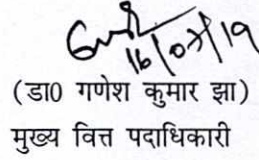 16/07/19
(डा0 गणेश कुमार झा)
मुख्य वित्त पदाधिकारी